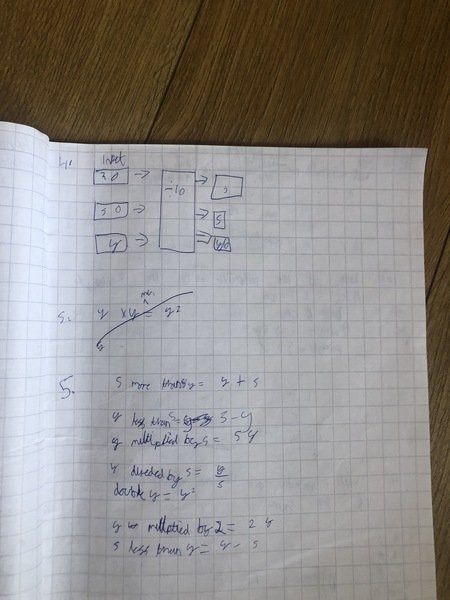 4. Input
20 → ÷10 →
50 → → 5
y →
5. y × y = y²
5. 5 more than y = y + 5
y less than 5 = 5 - y
y multiplied by 5 = 5y
y divided by 5 = y/5
double y = y²
y multiplied by 2 = 2y
5 less than y = y - 5